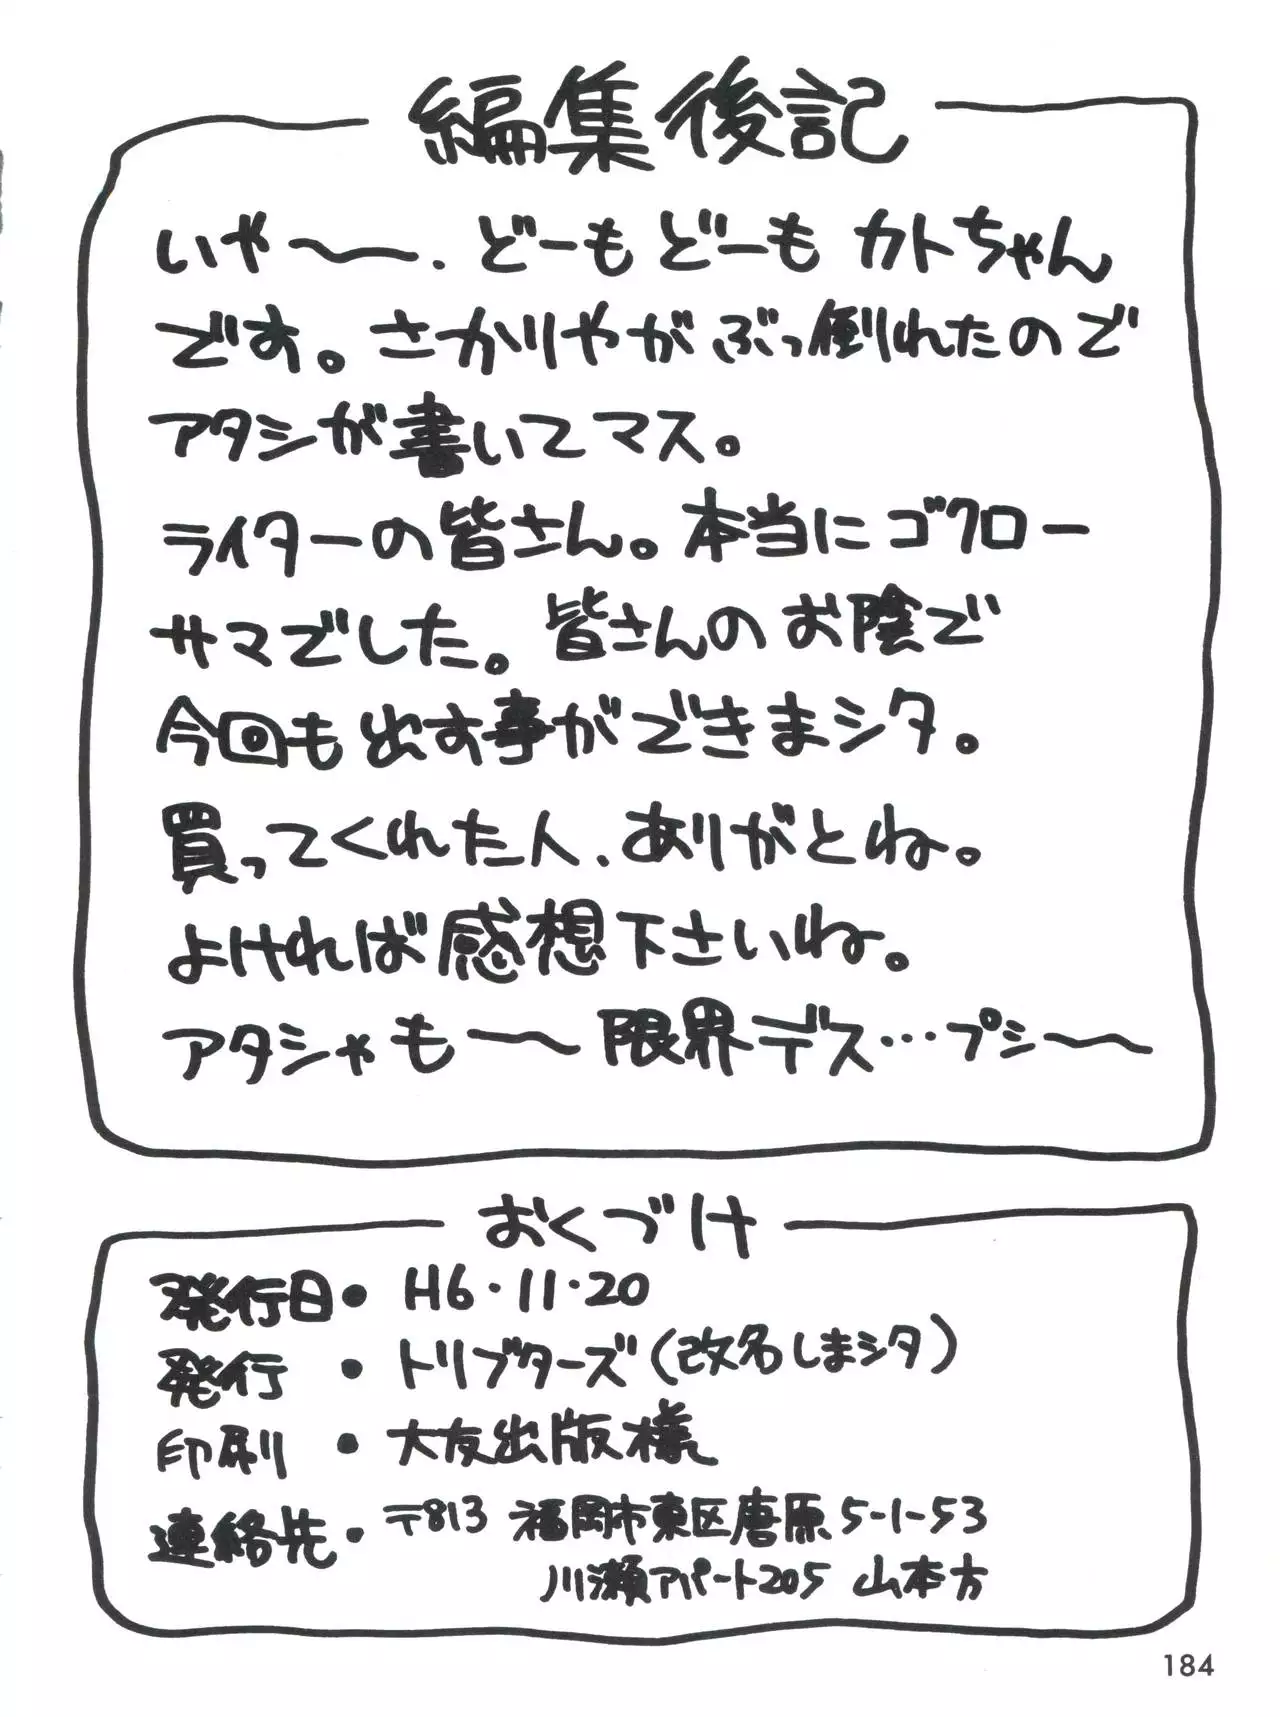 編集後記
いや〜〜.どーもどーもカトちゃん
です。さかりやがぶっ倒れたので
アタシが書いてマス。
ライターの皆さん。本当にゴクロー
サマでした。皆さんのお陰で
今回も出す事ができまシタ。
買ってくれた人、ありがとね。
よければ感想下さいね。
アタシゃも〜〜限界デス…プシ〜〜
おくづけ
発行日・H6・11・20
発行・トリブターズ(改名しまシタ)
印刷・大友出版様
連絡先・〒813 福岡市東区唐原5-1-53
川瀬アパート205 山本方
184